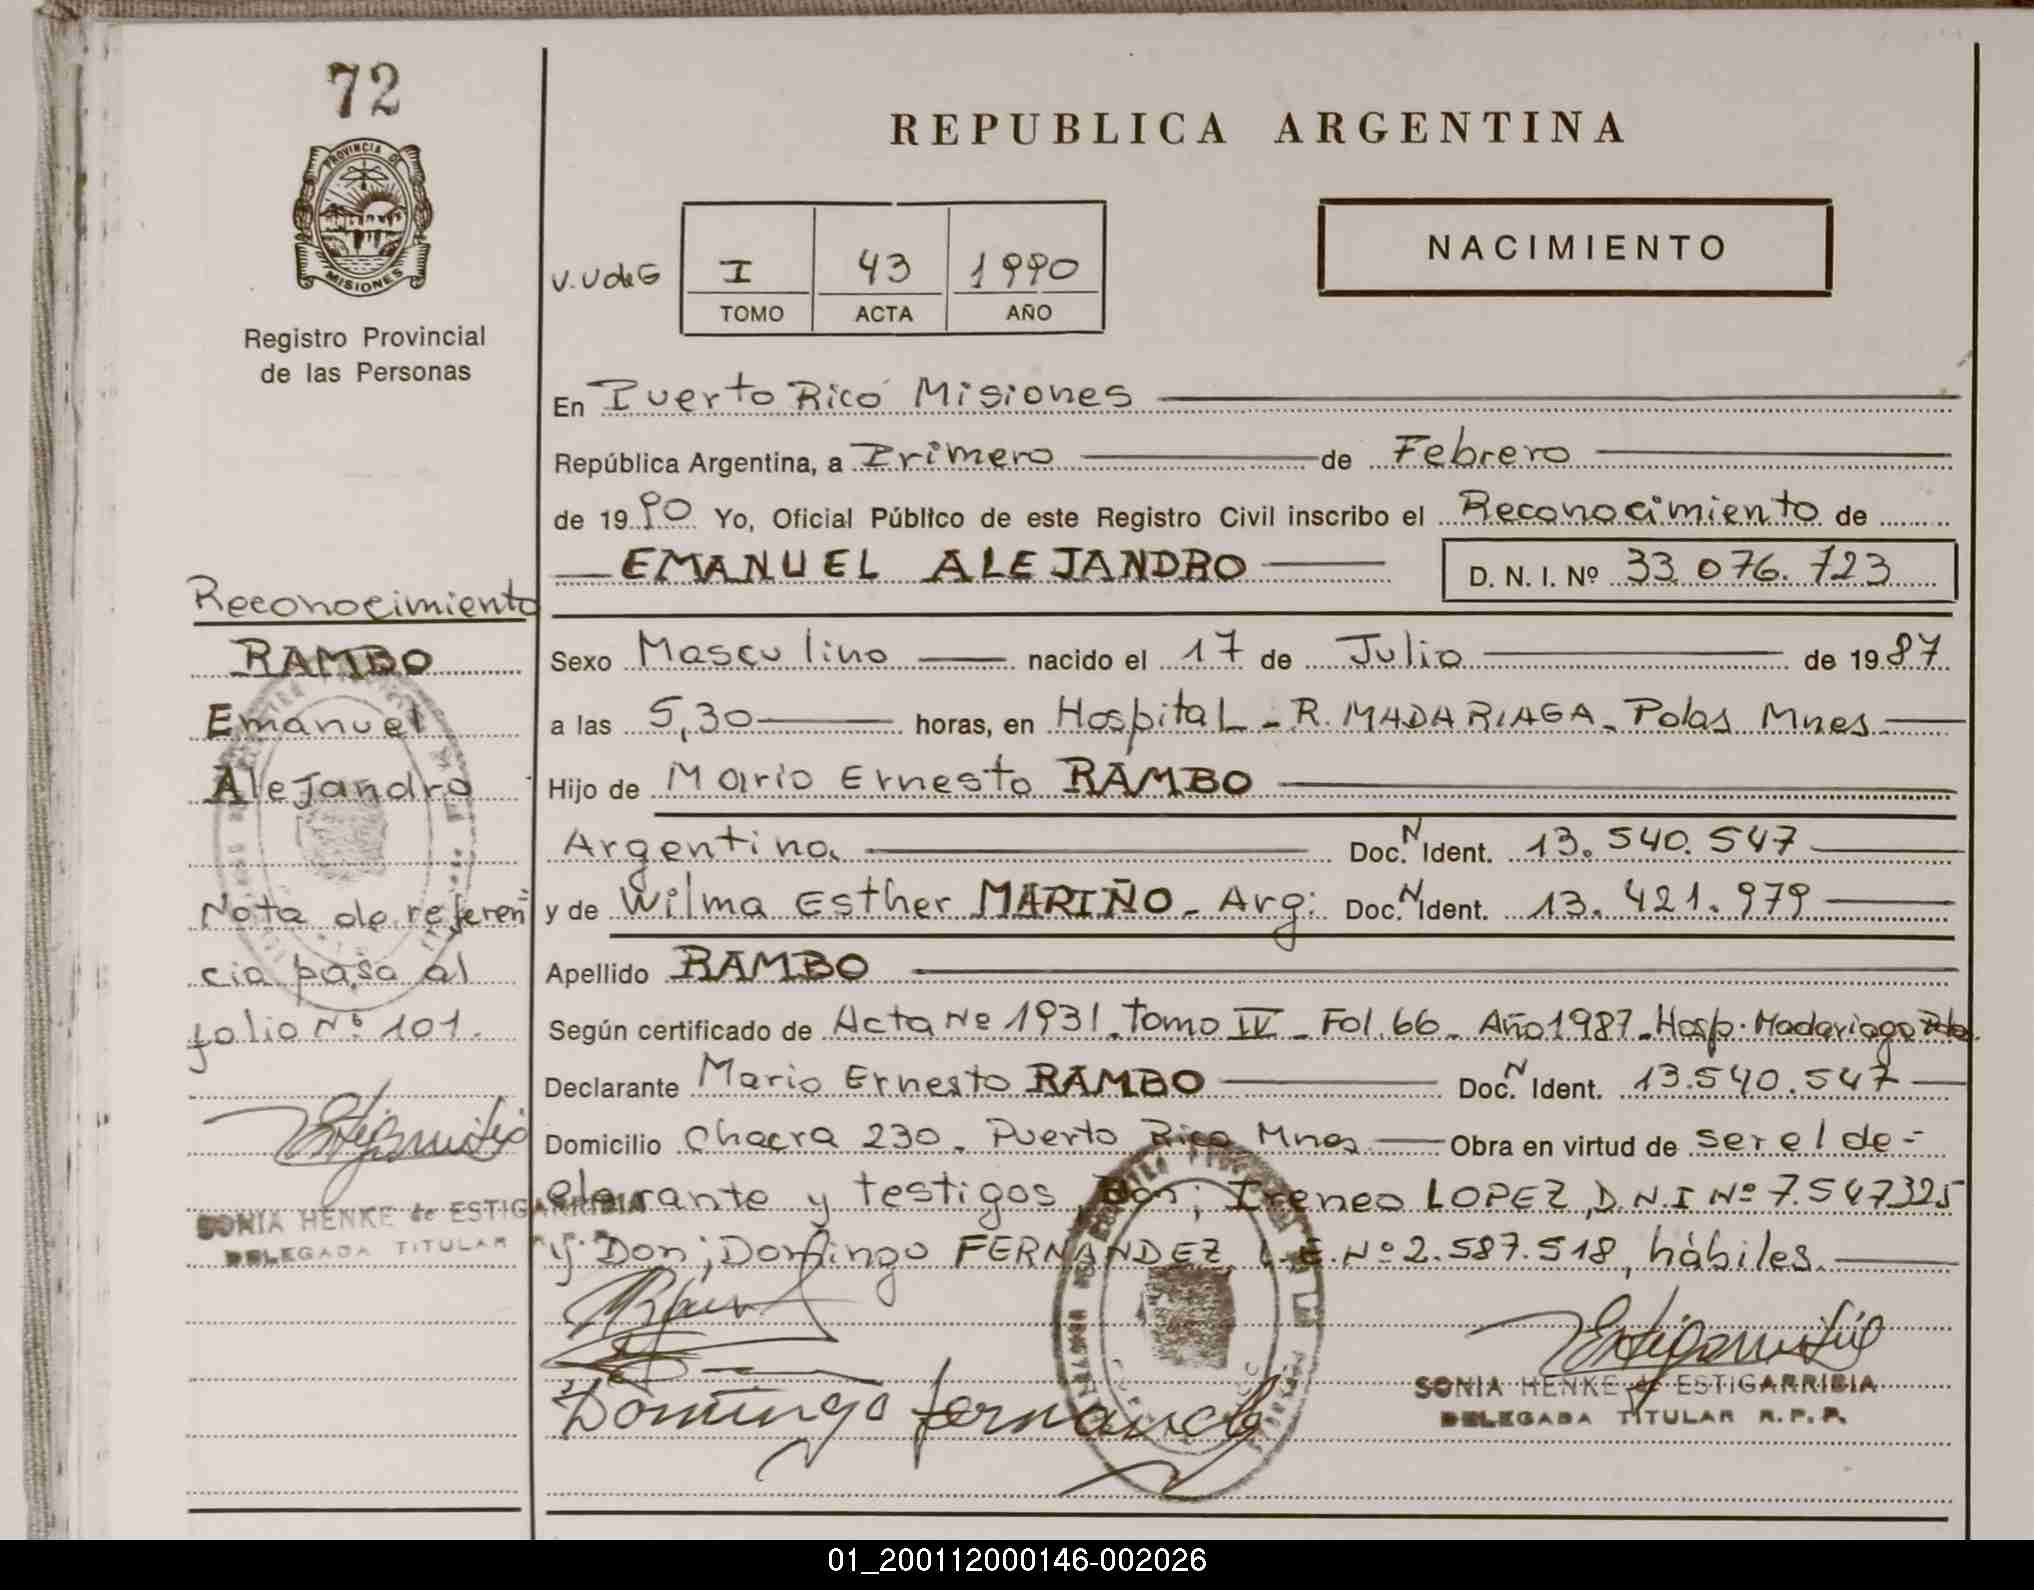 72
PROVINCIA DE
MISIONES
Registro Provincial
de las Personas
REPUBLICA ARGENTINA
V.U de G
I 43 1990
TOMO ACTA AÑO
NACIMIENTO
En Puerto Rico Misiones
República Argentina, a Primero de Febrero
de 1990 Yo, Oficial Público de este Registro Civil inscribo el Reconocimiento de
EMANUEL ALEJANDRO D. N. I. Nº 33.076.723
Sexo Masculino nacido el 17 de Julio de 1987
a las 5,30 horas, en Hospital - R. MADARIAGA - Polas Mnes
Hijo de Mario Ernesto RAMBO
Argentina Doc. N Ident. 13.540.547
y de Wilma Esther MARIÑO - Arg: Doc. N Ident. 13.421.979
Apellido RAMBO
Según certificado de Acta Nº 1931. Tomo IV - Fol. 66 - Año 1987 - Hosp. Madariaga
Declarante Mario Ernesto RAMBO Doc. N Ident. 13.540.547
Domicilio Chacra 230 - Puerto Rico Mnes Obra en virtud de ser el de-
clarante y testigos, Don; Ireneo LOPEZ, D.N.I Nº 7.547325
y Don; Domingo FERNANDEZ, L.E. Nº 2.587.518, hábiles.
Domingo Fernandez
SONIA HENKE de ESTIGARRIBIA
DELEGADA TITULAR R.P.P.
Reconocimiento
RAMBO
Emanuel
Alejandro
Nota de referen=
cia pasa al
folio Nº 101.
SONIA HENKE de ESTIGARRIBIA
DELEGADA TITULAR R.P.P.
01_200112000146-002026